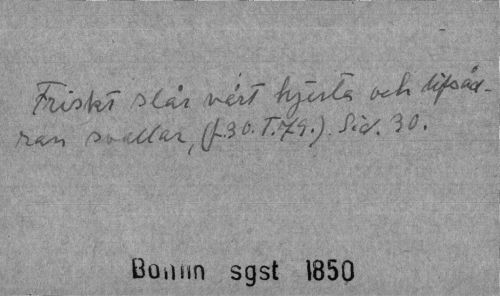 Friskt slår vårt hjerta och lifsåd-
ran svallar, (f.30. T.79.). Sid. 30.
Bohlin sgst 1850